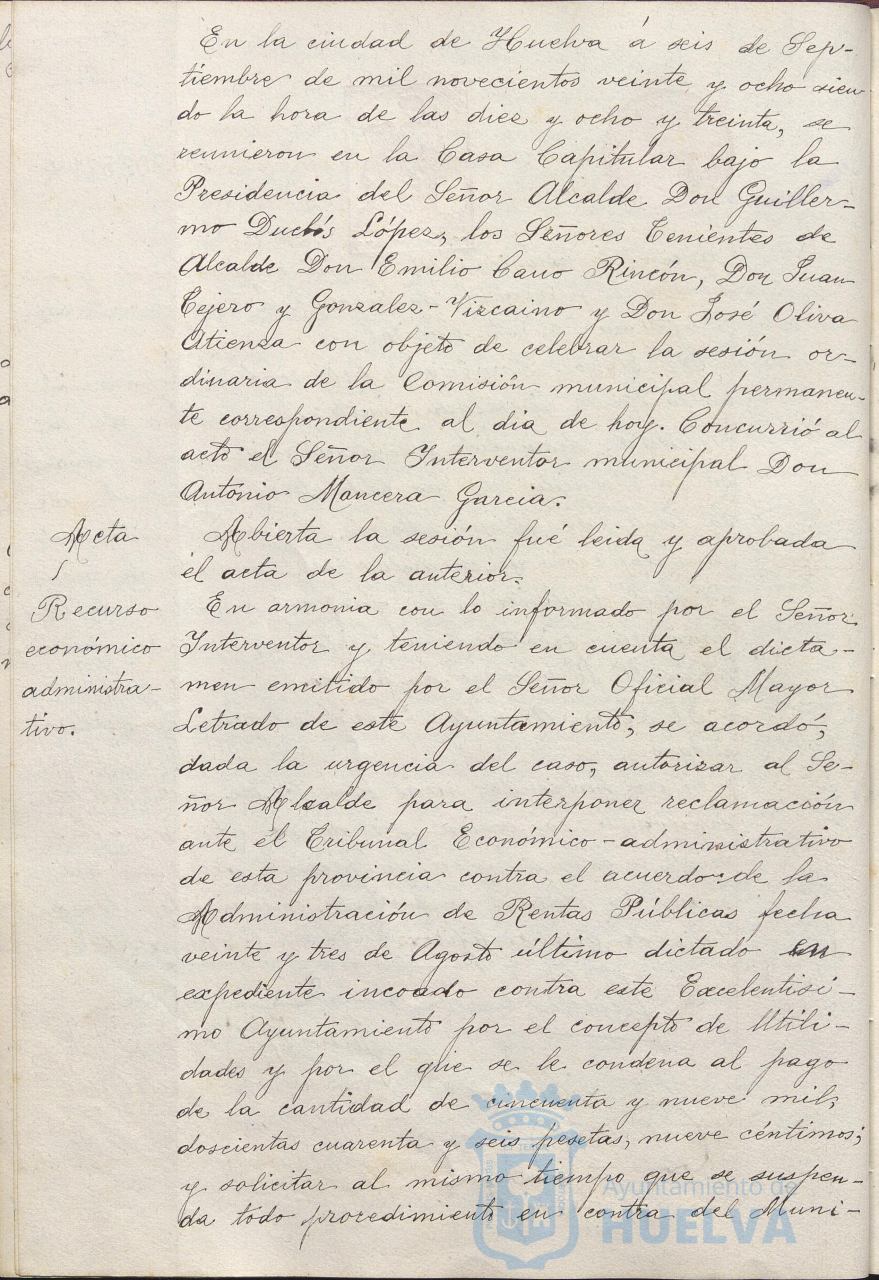 En la ciudad de Huelva á seis de Sep-
tiembre de mil novecientos veinte y ocho sien-
do la hora de las diez y ocho y treinta, se
reunieron en la Casa Capitular bajo la
Presidencia del Señor Alcalde Don Guiller-
mo Duclós López, los Señores Tenientes de
Alcalde Don Emilio Cano Rincón, Don Juan
Tejero y Gonzalez-Vizcaino y Don José Oliva
Atienza con objeto de celebrar la sesión or-
dinaria de la Comisión municipal permanen-
te correspondiente al dia de hoy. Concurrió al
acto el Señor Interventor municipal Don
Antonio Mancera Garcia.
Acta
Abierta la sesión fué leida y aprobada
el acta de la anterior.
Recurso
económico
administra-
tivo.
En armonia con lo informado por el Señor
Interventor y teniendo en cuenta el dicta-
men emitido por el Señor Oficial Mayor
Letrado de este Ayuntamiento, se acordó,
dada la urgencia del caso, autorizar al Se-
ñor Alcalde para interponer reclamación
ante el Tribunal Económico-administrativo
de esta provincia contra el acuerdo de la
Administración de Rentas Públicas fecha
veinte y tres de Agosto último dictado en
expediente incoado contra este Excelentisi-
mo Ayuntamiento por el concepto de Utili-
dades y por el que se le condena al pago
de la cantidad de cincuenta y nueve mil,
doscientas cuarenta y seis pesetas, nueve céntimos;
y solicitar al mismo tiempo que se suspen-
da todo procedimiento en contra del Muni-
Ayuntamiento de
HUELVA